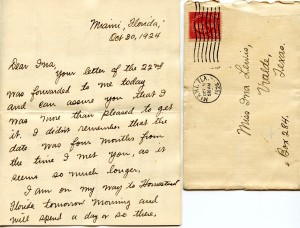 Miami, Florida,
Oct 30, 1924
Dear Ina,
Your letter of the 22nd
was forwarded to me today
and can assure you that I
was more than pleased to get
it. I didn't remember that the
date was four months from
the time I met you, as it
seems so much longer.
I am on my way to Homestead
Florida tomorrow morning and
will spend a day or so there,
Miss Ina Lewis,
Uvalde,
Texas.
Box 284.